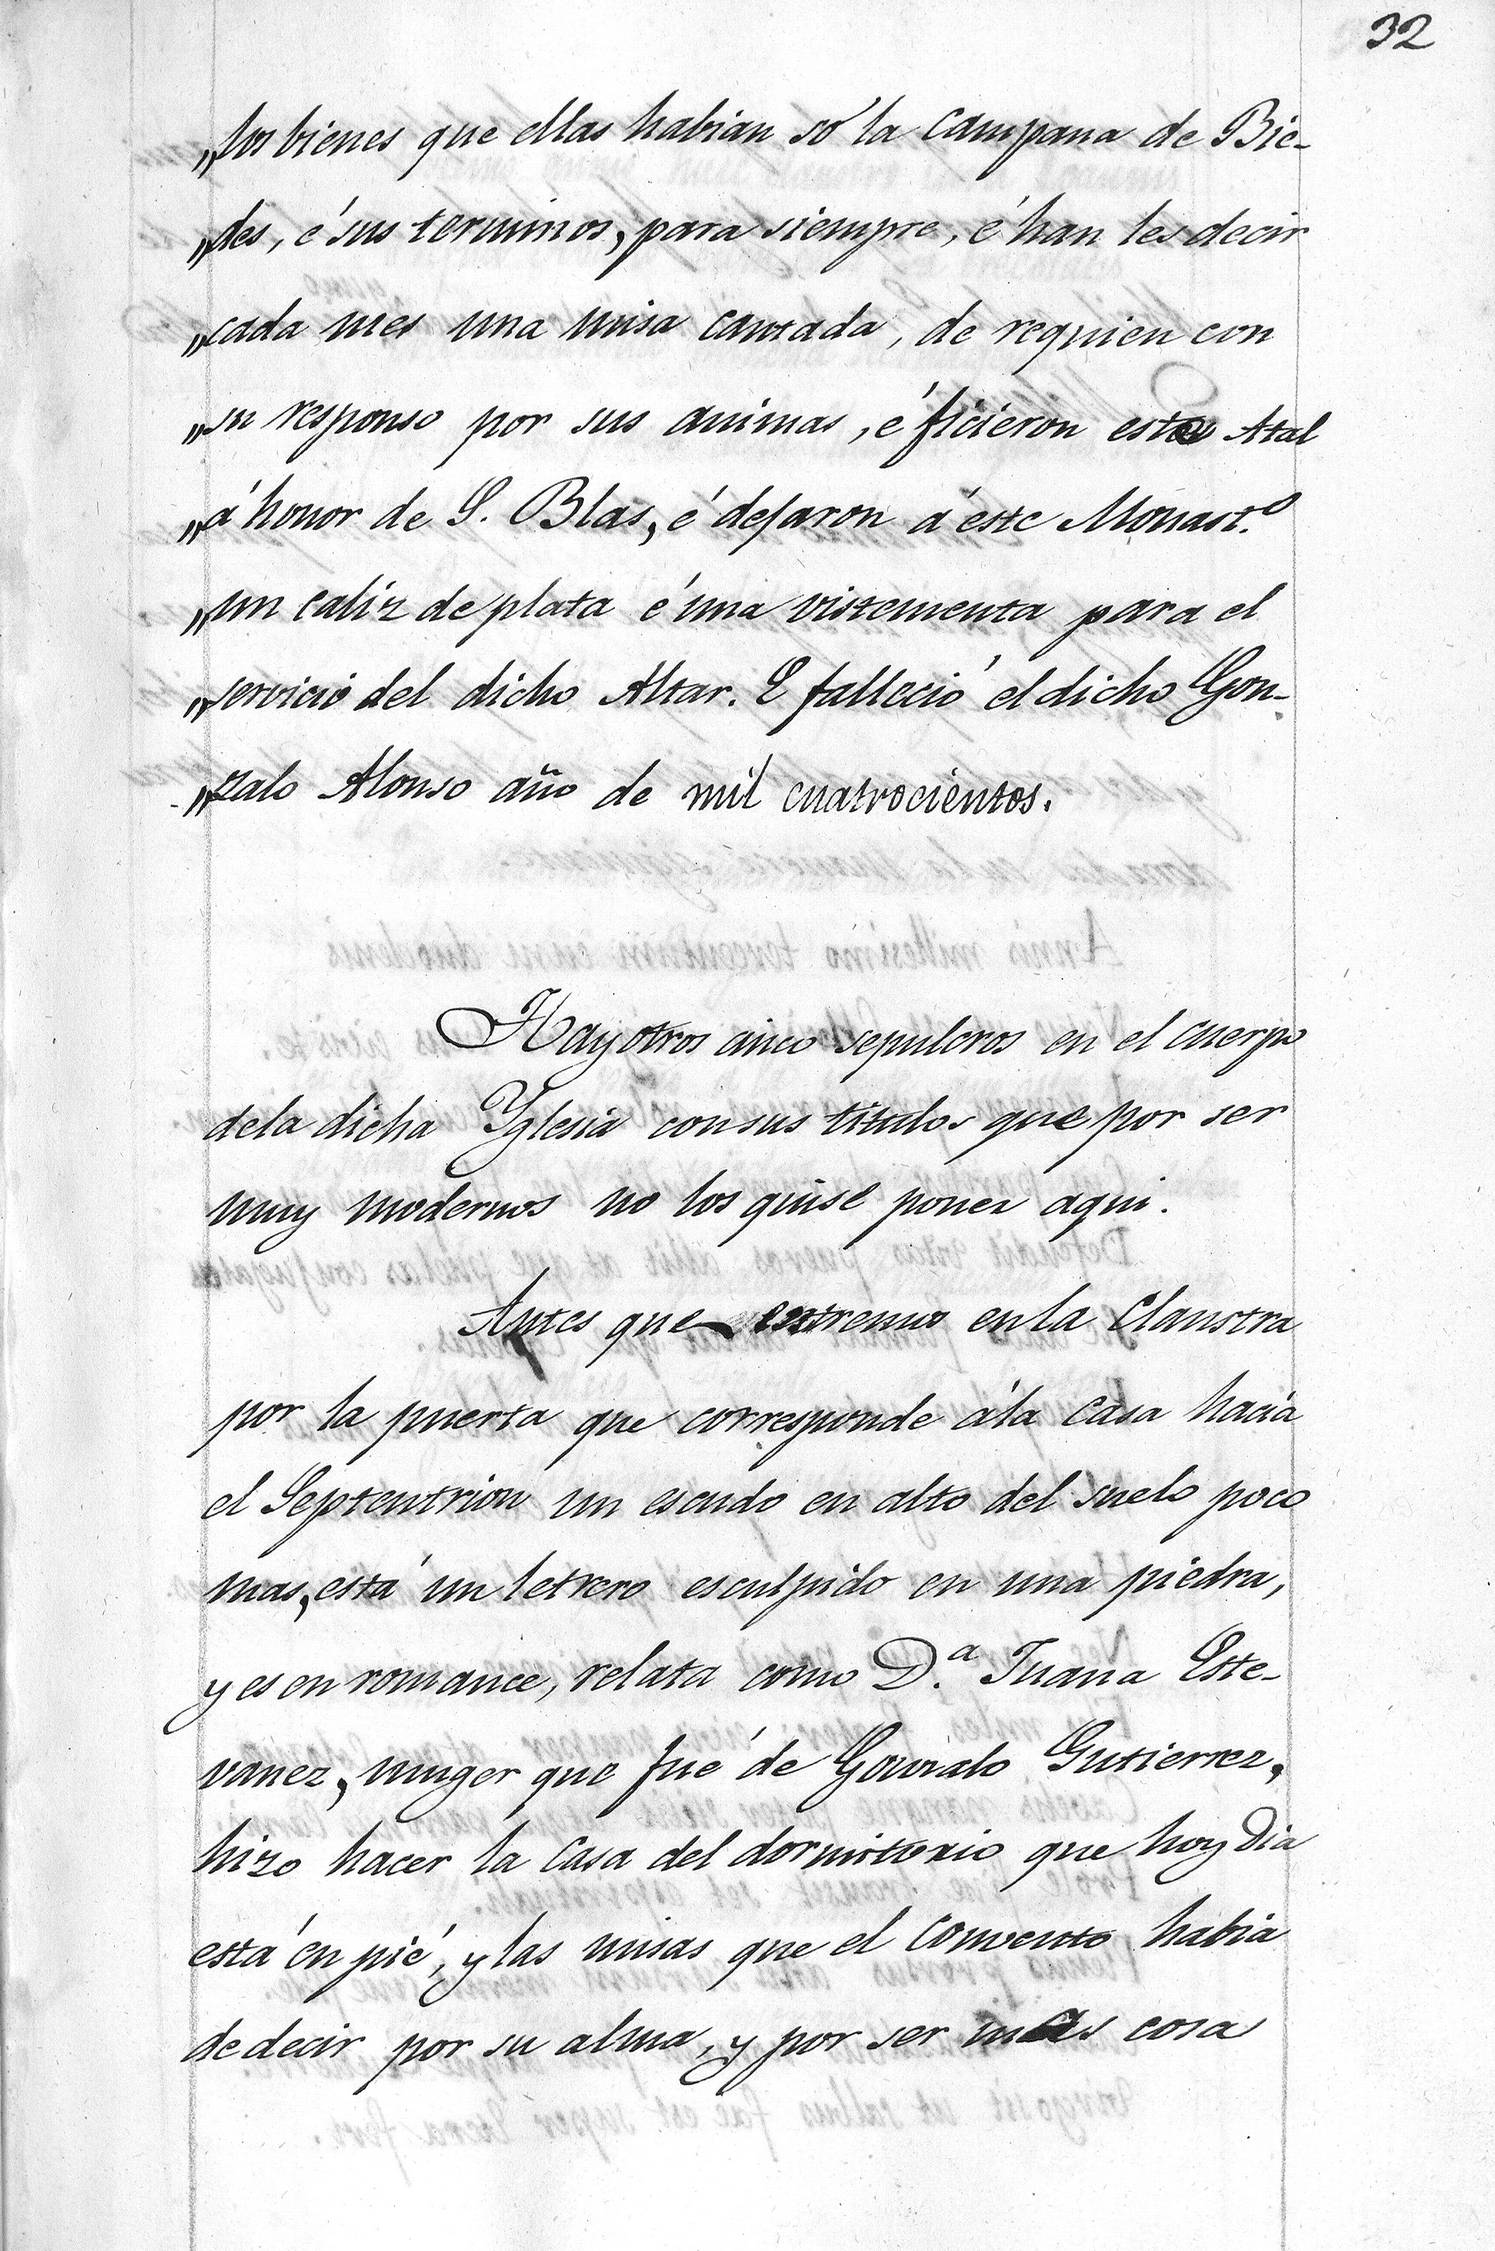 32
„los bienes que ellas habian só la campana de Bie-
„des, é sus terminos, para siempre, é han les decir
„cada mes una misa cantada, de requien con
„su responso por sus animas, é ficieron este Atal
„á honor de S. Blas, é dejaron á éste Monast.º
„un caliz de plata é una vistementa para el
„servicio del dicho Altar. E falleció el dicho Gon-
„zalo Alonso año de mil cuatrocientos.
Hay otros cinco sepulcros en el cuerpo
dela dicha Yglesia con sus titulos que por ser
muy modernos no los quise poner aqui.
Antes que entremos en la Claustra
por la puerta que corresponde á la casa hacia
el Septentrion un escudo en alto del suelo poco
mas, está un letrero esculpido en una piedra,
y es en romance, relata como D.ª Juana Este-
vanez, muger que fué de Gonzalo Gutierrez,
hizo hacer la casa del dormitorio que hoy dia
está en pié, y las misas que el convento habia
de decir por su alma, y por ser mas cosa